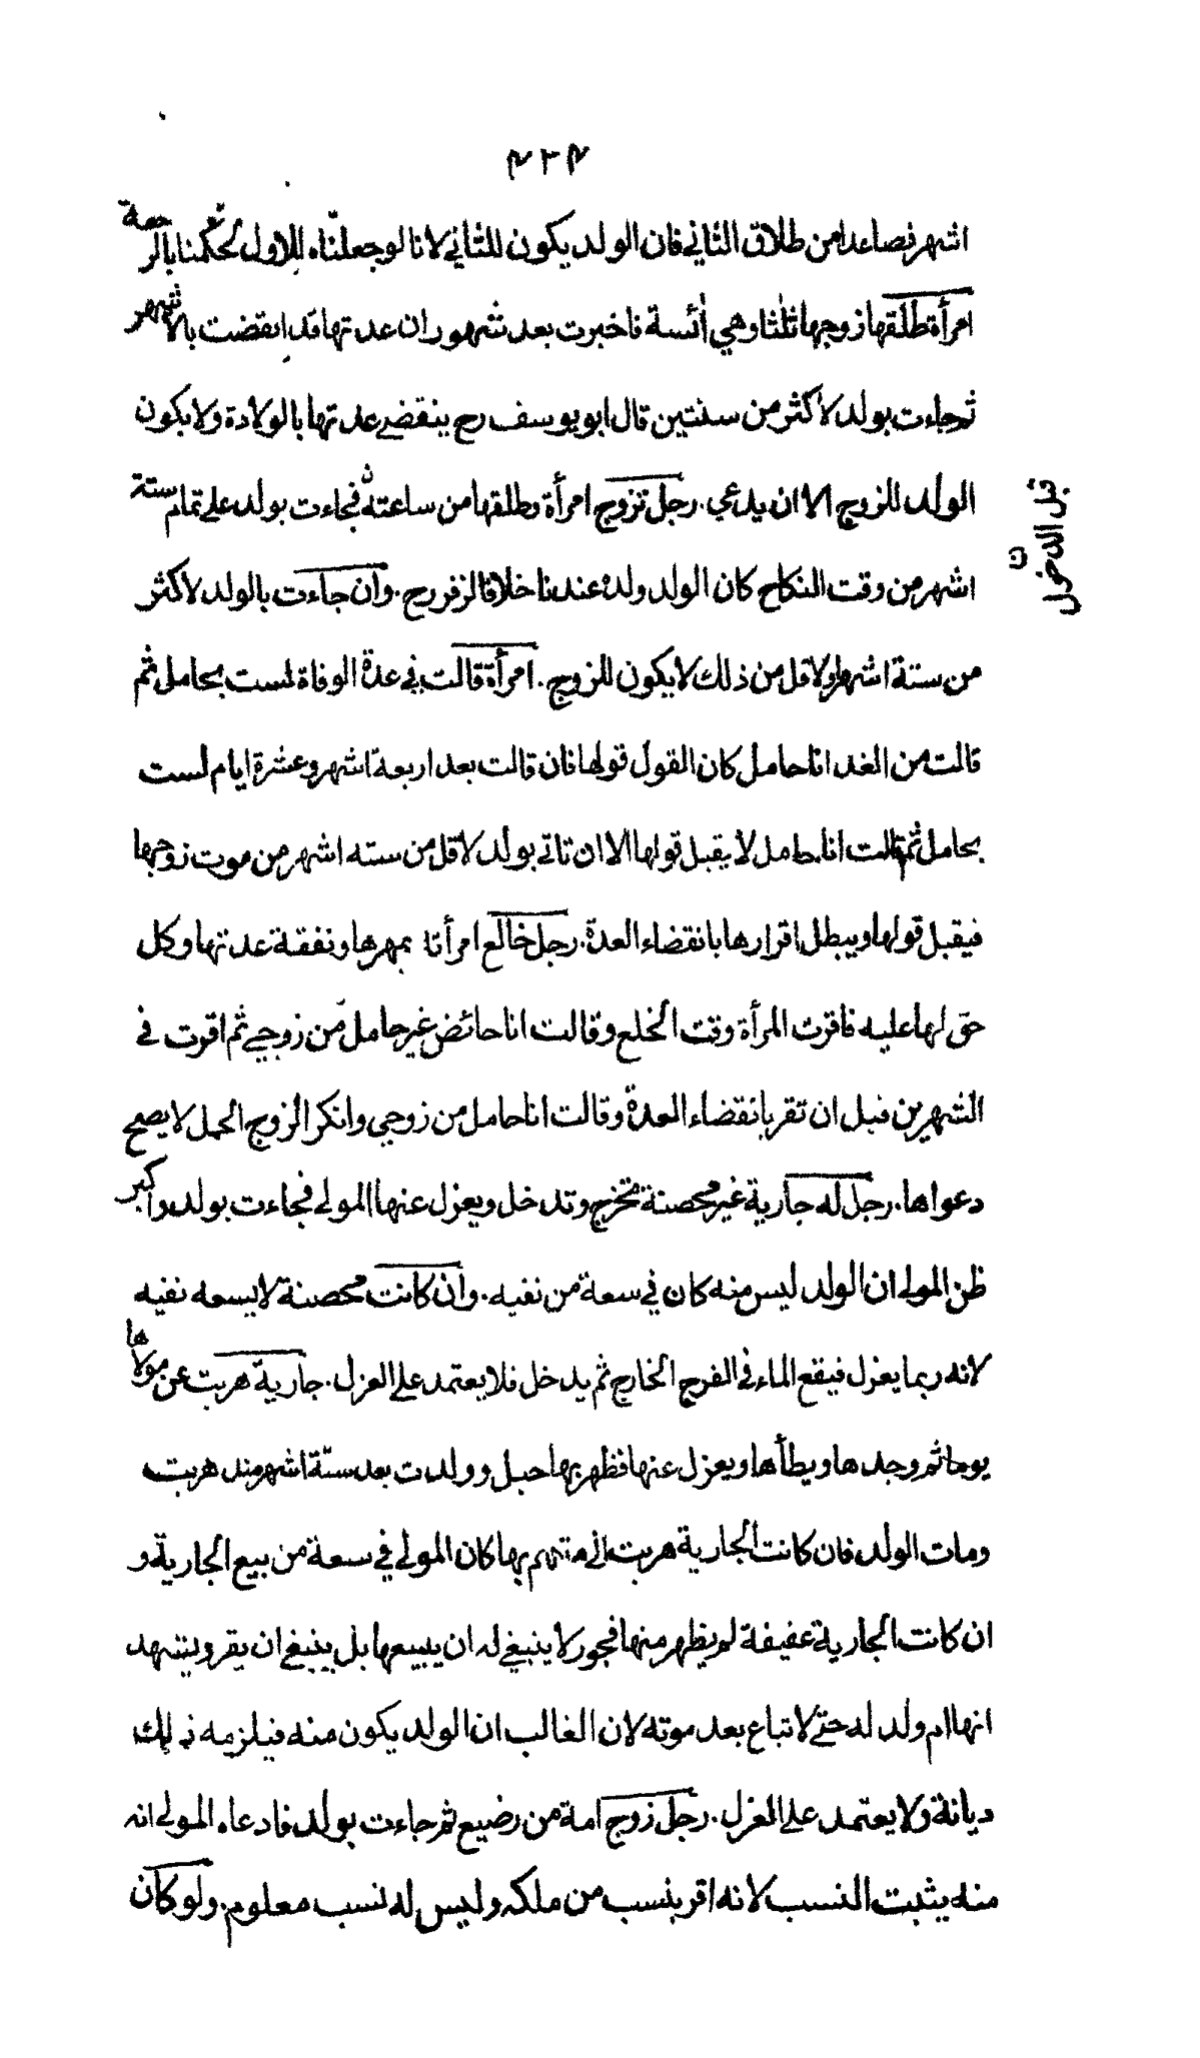 ٤٢٤
اشهر فصاعدا من طلاق الثاني فان الولد يكون للثاني لانا لو جعلناه للاول لحكمنا بالرجعة
امرأة طلقها زوجها ثلثا وهي آئسة فاخبرت بعد شهور ان عدتها قد انقضت بالاشهر
ثم جاءت بولد لاكثر من سنتين قال ابو يوسف رح ينقضي عدتها بالولادة ولا يكون
الولد للزوج الا ان يدعي . رجل تزوج امرأة وطلقها من ساعته فجاءت بولد على تمام ستة
قبل الدخول ن
اشهر من وقت النكاح كان الولد ولده عندنا خلافا لزفر رح . وان جاءت بالولد لاكثر
من ستة اشهر او لاقل من ذلك لا يكون للزوج . امرأة قالت في عدة الوفاة لست بحامل ثم
قالت من الغد انا حامل كان القول قولها فان قالت بعد اربعة اشهر وعشرة ايام لست
بحامل ثم قالت انا حامل لا يقبل قولها الا ان تاتي بولد لاقل من سته اشهر من موت زوجها
فيقبل قولها ويبطل اقرارها بانقضاء العدة . رجل خالع امرأتا بمهرها ونفقة عدتها وكل
حق لها عليه فاقرت المرأة وقت الخلع وقالت انا حائض غير حامل من زوجي ثم اقرت في
الشهرين قبل ان تقر بانقضاء العدة وقالت انا حامل من زوجي وانكر الزوج الحمل لا يصح
دعواها . رجل له جارية غير محصنة تخرج وتدخل ويعزل عنها المولى فجاءت بولد واكبر
ظن المولى ان الولد ليس منه كان في سعة من نفيه . وان كانت محصنة لا يسعه نفيه
لانه ربما يعزل فيقع الماء في الفرج الخارج ثم يدخل فلا يعتمد على العزل . جارية هربت عن مولاها
يوما ثم وجدها ويطأها ويعزل عنها فظهر بها حبل وولدت بعد ستة اشهر منذ هربت
ومات الولد فان كانت الجارية هربت الى متهم بها كان المولى في سعة من بيع الجارية و
ان كانت الجارية عفيفة لم يظهر منها فجور لا ينبغي له ان يبيعها بل ينبغي ان يقر ويشهد
انها ام ولد له حتى لا تباع بعد موته لان الغالب ان الولد يكون منه فيلزمه ذلك
ديانة ولا يعتمد على العزل . رجل زوج امة من رضيع ثم جاءت بولد فادعاه المولى انه
منه يثبت النسب لانه اقر بنسب من ملكه وليس له نسب معلوم . ولو كان